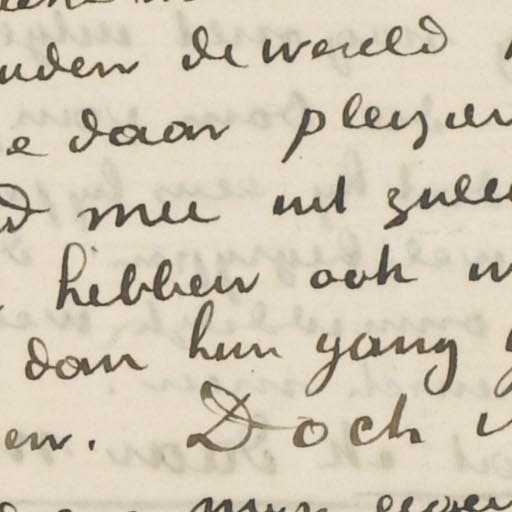 uden de wereld
e daar pleizier
d mee uit zulle
hebben ook
dan hun gang g
en. Doch
mijn